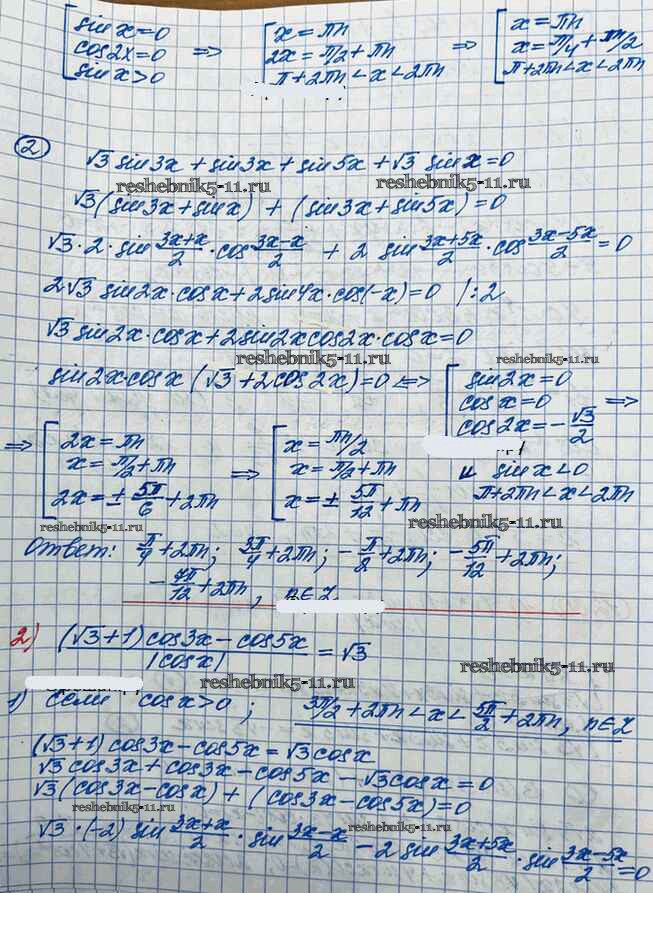 [ sin x = 0 ⇒ [ x = πn ⇒ [ x = πn
cos 2x = 0   2x = π/2 + πn   x = π/4 + πn/2
sin x > 0   π + 2πn < x < 2πn   π + 2πn < x < 2πn
② √3 sin 3x + sin 3x + sin 5x + √3 sin x = 0
reshebnik5-11.ru reshebnik5-11.ru
√3 (sin 3x + sin x) + (sin 3x + sin 5x) = 0
√3 · 2 · sin (3x+x)/2 · cos (3x-x)/2 + 2 sin (3x+5x)/2 · cos (3x-5x)/2 = 0
2√3 sin 2x · cos x + 2 sin 4x · cos(-x) = 0 | : 2
√3 sin 2x · cos x + 2 sin 2x cos 2x · cos x = 0
reshebnik5-11.ru reshebnik5-11.ru
sin 2x cos x (√3 + 2 cos 2x) = 0 ⇔ [ sin 2x = 0
cos x = 0 ⇒
cos 2x = - √3/2
и sin x < 0
π + 2πn < x < 2πn
⇒ [ 2x = πn ⇒ [ x = πn/2
x = π/2 + πn   x = π/2 + πn
2x = ± 5π/6 + 2πn   x = ± 5π/12 + πn
reshebnik5-11.ru reshebnik5-11.ru
Ответ: π/4 + 2πn; 3π/4 + 2πn; - π/2 + 2πn; - 5π/12 + 2πn;
- 7π/12 + 2πn, n ∈ Z
2) ((√3 + 1) cos 3x - cos 5x)/|cos x| = √3
reshebnik5-11.ru
reshebnik5-11.ru
1) если cos x > 0; 3π/2 + 2πn < x < 5π/2 + 2πn, n ∈ Z
(√3 + 1) cos 3x - cos 5x = √3 cos x
√3 cos 3x + cos 3x - cos 5x - √3 cos x = 0
√3 (cos 3x - cos x) + (cos 3x - cos 5x) = 0
reshebnik5-11.ru
reshebnik5-11.ru
√3 · (-2) sin (3x+x)/2 · sin (3x-x)/2 - 2 sin (3x+5x)/2 · sin (3x-5x)/2 = 0